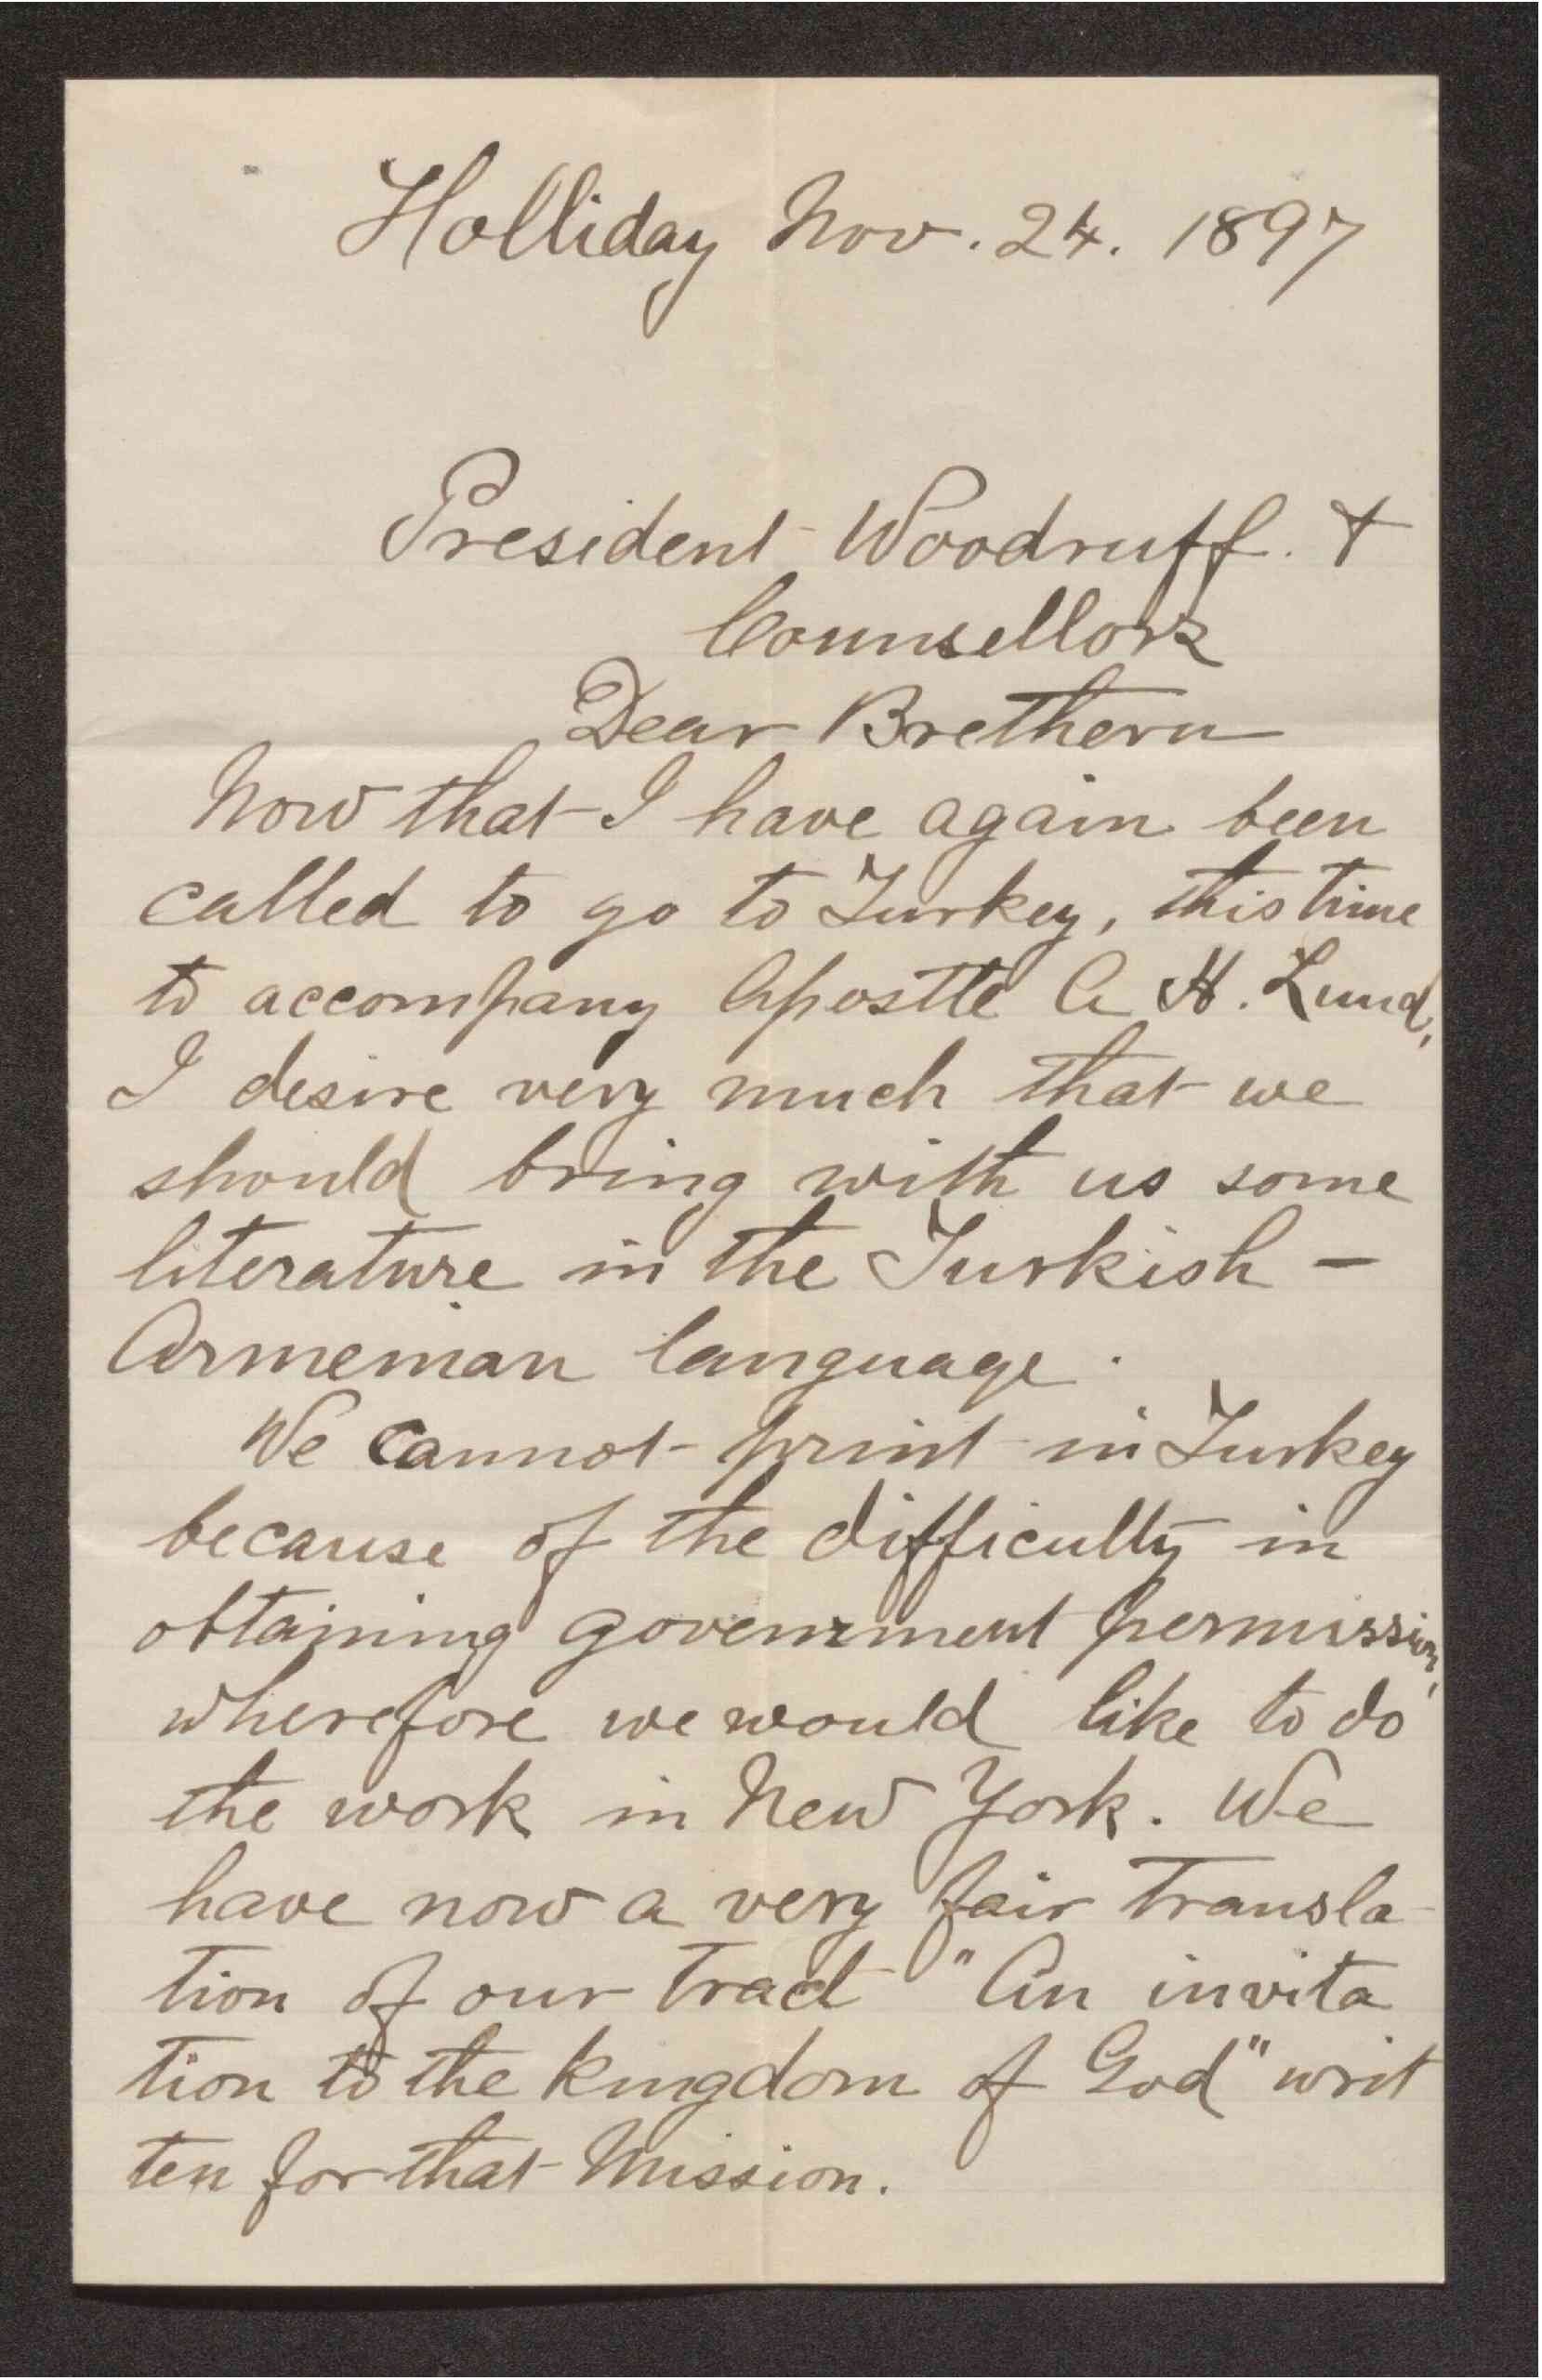 Holliday Nov. 24. 1897
President Woodruff. &
Counsellors
Dear Brethern
Now that I have again been
called to go to Turkey, this time
to accompany Apostle A H. Lund,
I desire very much that we
should bring with us some
literature in the Turkish –
Armenian language.
We cannot print in Turkey
because of the difficulty in
obtaining government permission,
wherefore we would like to do
the work in New York. We
have now a very fair transla-
tion of our tract "An invita
tion to the kingdom of God" writ
ten for that Mission.